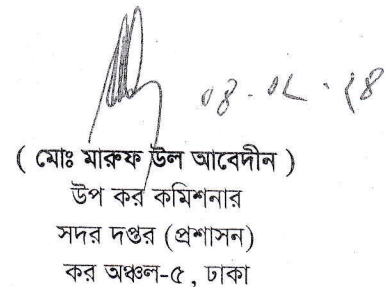 ( মোঃ মারুফ উল আবেদীন )
উপ কর কমিশনার
সদর দপ্তর (প্রশাসন)
কর অঞ্চল-৫, ঢাকা